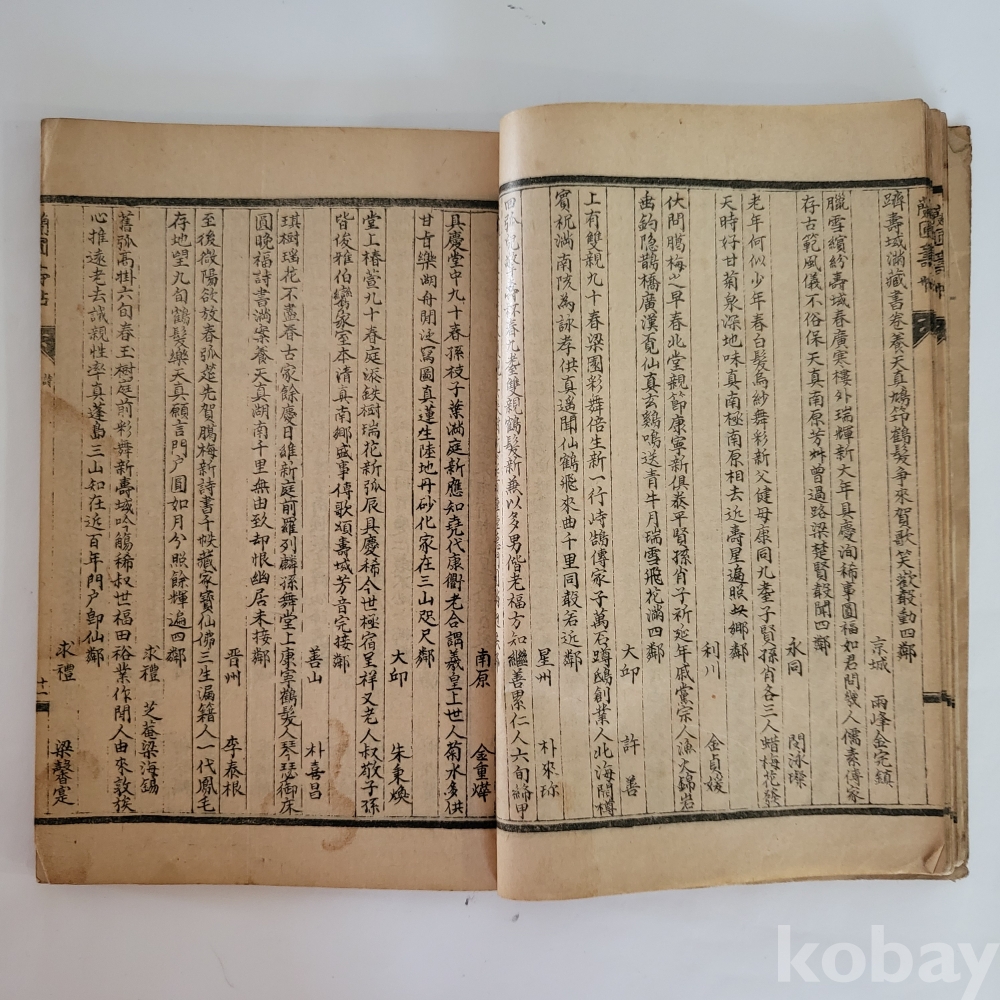 躋壽城滿藏書卷養天眞鳩筇鶴髮爭來賀歌笑歡聲動四鄰
京城 雨峰金完鎮
臘雪繽紛壽城春廣寒樓外瑞輝新大年具慶洵稀事圓福如君問幾人儒素傳家
存古範風儀不俗保天眞南原芳艸曾過路梁楚賢聲聞四鄰
永同 閔泳
老年何似少年春白髮烏紗舞彩新父健母康同九耋子賢孫肖各三人蜡梅花發
天時好甘菊泉深地味眞南極南原相去近壽星遍照此鄉鄰
利川 金貞
伏問臘梅之早春北堂親節康寧新俱泰平賢孫肖子祈延年戚黨宗人漁火錦岩
幽釣隐鵲橋廣漢覓仙眞玄鷄鳴送青牛月瑞雪飛花滿四鄰
大邱 許善
上有雙親九十春梁園彩舞倍生新一行詩鵠傳家子萬石蹲鴟創業人北海開樽
賓祝滿南陔為詠孝供眞遙聞仙鶴飛來曲千里同聲若近鄰
星州 朴來弥
春九耋雙親鶴髮新兼以多男偕老福方知繼善累仁人六旬緜甲
具慶堂中九十春孫枝子葉滿庭新應知堯代康衢老合謂羲皇上世人菊水多供
甘旨樂湖舟閒泛寫圖眞蓮生陸地丹砂化家在三山咫尺鄰
南原 金重燁
堂上椿萱九十春庭添鉄樹瑞花新弧辰具慶稀今世極宿呈祥又老人叔敬子孫
皆俊雅伯鸞家室本清眞南鄉盛事傳歌頌壽城芳音宅接鄰
大邱 朱秉煥
琪樹瑞花不盡春古家餘慶日維新庭前羅列麟孫舞堂上康寧鶴髮人琴瑟御床
圓晚福詩書滿案養天眞湖南千里無由致却恨幽居未接鄰
善山 朴喜昌
至後微陽欲放春弧筵先賀臘梅新詩書千帙藏家寶仙佛三生漏籍人一代鳳毛
存地望九旬鶴髮樂天眞願言門戶圓如月分照餘輝遍四鄰
晋州 李泰根
舊弧高掛六旬春玉樹庭前彩舞新壽城吟觴稀叔世福田裕業作閒人由來敦族
求禮 芝菴梁海錫
心推遠老去誠親性率眞蓬島三山知在近百年門戶卽仙鄰
求禮 梁馨寔